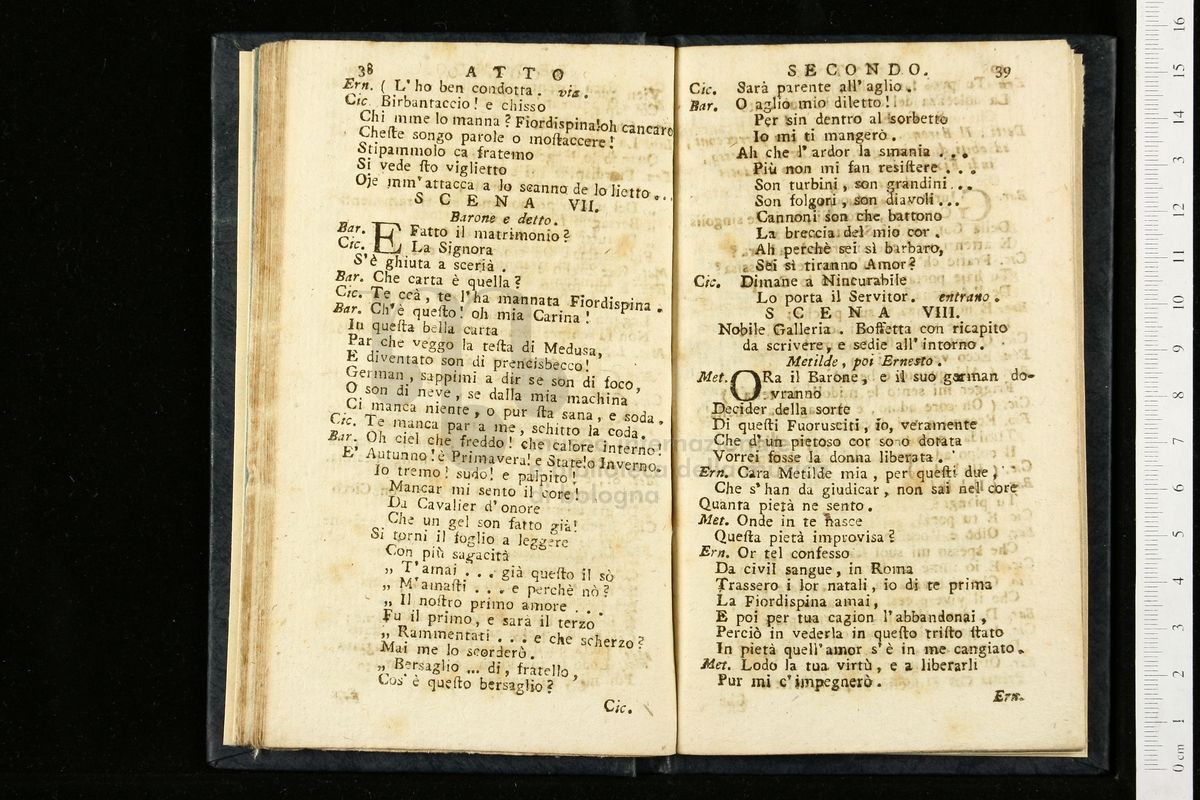 38 ATTO
Ern. ( L' ho ben condotta. via.
Cic. Birbantaccio! e chisso
Chi mme lo manna? Fiordispina!oh cancaro
Cheſte songo parole o moſtaccere!
Stipammolo ca fratemo
Si vede ſto viglietto
Oje mm'attacca a lo scanno de lo lietto...
SCENA VII.
Barone e detto.
Bar. E Fatto il matrimonio?
Cic. La Signora
S'è ghiuta a scerià.
Bar. Che carta è quella?
Cic. Te ccà, te l'ha mannata Fiordispina.
Bar. Ch'è queſto! oh mia Carina!
In queſta bella carta
Par che veggo la teſta di Medusa,
E diventato son di prencisbecco!
German, sappimi a dir se son di foco,
O son di neve, se dalla mia machina
Ci manca niente, o pur ſta sana, e soda.
Cic. Te manca par a me, schitto la coda.
Bar. Oh ciel che freddo! che calore interno!
E' Autunno!è Primavera! e State!o Inverno.
Io tremo! sudo! e palpito!
Mancar mi sento il core!
Da Cavalier d'onore
Che un gel son fatto già!
Si torni il foglio a leggere
Con più sagacità
„ T'amai ... già queſto il sò
„ M'amaſti .... e perchè nò?
„ Il noſtro primo amore ...
Fu il primo, e sarà il terzo
„ Rammentati ... e che scherzo?
Mai me lo scorderò.
„ Bersaglio ... di, fratello,
Cos' è queſto bersaglio?
Cic.
SECONDO. 39
Cic. Sarà parente all' aglio.
Bar. O aglio mio diletto!
Per sin dentro al sorbetto
Io mi ti mangerò.
Ah che l' ardor la smania ...
Più non mi fan resiſtere ...
Son turbini, son grandini...
Son folgori, son diavoli...
Cannoni son che battono
La breccia del mio cor.
Ah perchè sei sì barbaro,
Sei sì tiranno Amor?
Cic. Dimane a Nincurabile
Lo porta il Servitor. entrano.
SCENA VIII.
Nobile Galleria. Boffetta con ricapito
da scrivere, e sedie all' intorno.
Metilde, poi Ernesto.
Met. ORa il Barone, e il suo german do-
vranno
Decider della sorte
Di queſti Fuorusciti, io, veramente
Che d'un pietoso cor sono dotata
Vorrei fosse la donna liberata.
Ern. Cara Metilde mia, per queſti due,
Che s'han da giudicar, non sai nel core
Quanta pietà ne sento.
Met. Onde in te nasce
Queſta pietà improvisa?
Ern. Or tel confesso
Da civil sangue, in Roma
Trassero i lor natali, io di te prima
La Fiordispina amai,
E poi per tua cagion l'abbandonai,
Perciò in vederla in queſto triſto ſtato
In pietà quell'amor s'è in me cangiato.
Met. Lodo la tua virtù, e a liberarli
Pur mi c'impegnerò.
Ern.